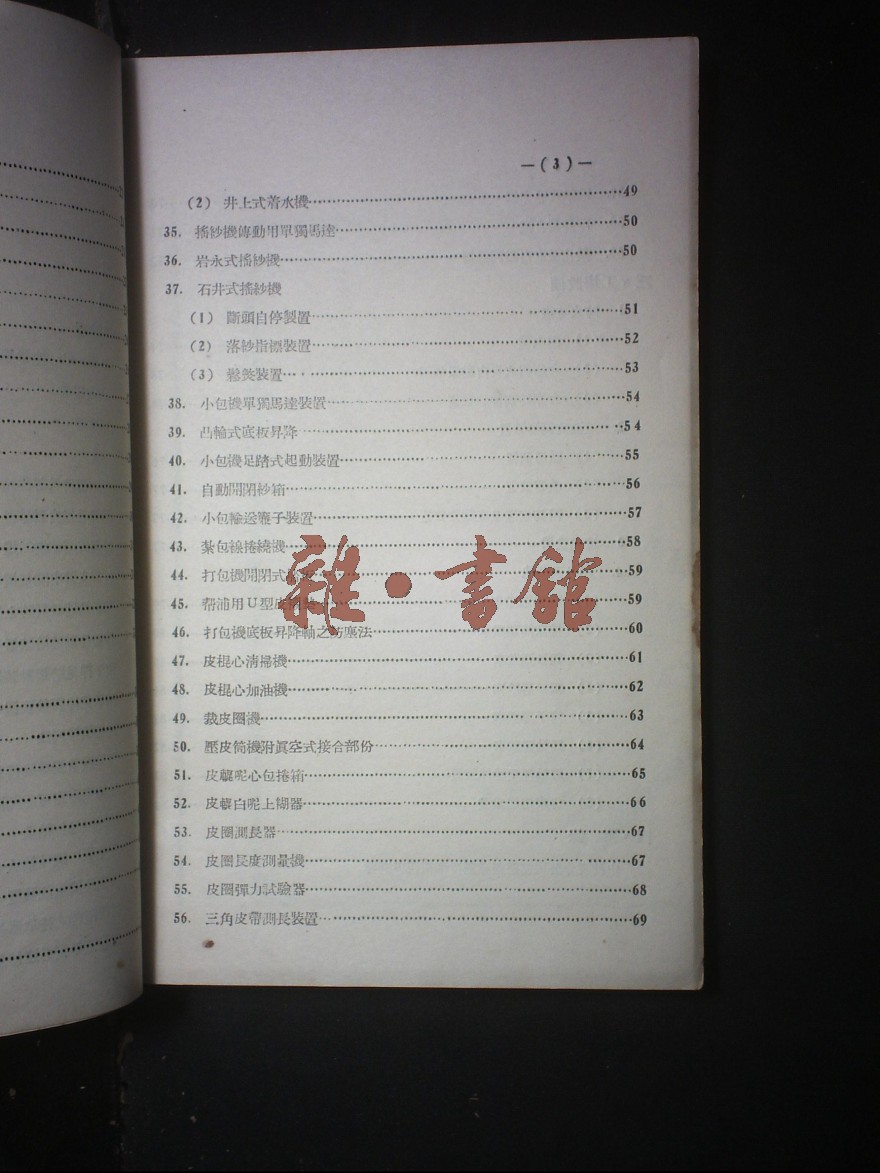 —(3)—
(2) 井上式着水機 49
35. 搖紗機傳動用單獨馬達 50
36. 岩永式搖紗機 50
37. 石井式搖紗機
(1) 斷頭自停製置 51
(2) 落紗指標裝置 52
(3) 鬆裝置 53
38. 小包機單獨馬達裝置 54
39. 凸輪式底板昇降 54
40. 小包機足踏式起動裝置 55
41. 自動開閉紗箱 56
42. 小包輸送簾子裝置 57
43. 紮包線捲繞機 58
44. 打包機開閉式 59
45. 幫浦用U型皮 59
46. 打包機底板昇降軸之防塵法 60
47. 皮棍心清掃機 61
48. 皮棍心加油機 62
49. 裁皮圈機 63
50. 壓皮筒機附眞空式接合部份 64
51. 皮輥呢心包捲箱 65
52. 皮輥白呢上糊器 66
53. 皮圈測長器 67
54. 皮圈長度測量機 67
55. 皮圈彈力試驗器 68
56. 三角皮帶測長裝置 69
雜·書館